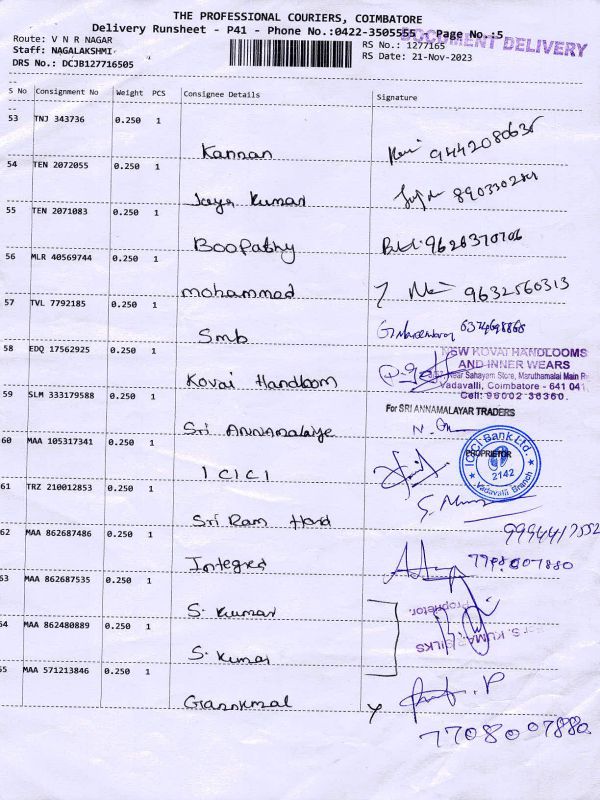 THE PROFESSIONAL COURIERS, COIMBATORE
Delivery Runsheet - P41 - Phone No.:0422-3505555 - Page No.:5
DOCUMENT DELIVERY
Route: V N R NAGAR
RS No.: 1277165
Staff: NAGALAKSHMI
RS Date: 21-Nov-2023
DRS No.: DCJB127716505
S No Consignment No Weight PCS Consignee Details Signature
53 TNJ 343736 0.250 1
Kannan
54 TEN 2072055 0.250 1
Jaya Kumar
55 TEN 2071083 0.250 1
Boopathy
56 MLR 40569744 0.250 1
mohammed 9632560313
57 TVL 7792185 0.250 1
Smb
58 EDQ 17562925 0.250 1
NEW KOVAI HANDLOOMS
AND INNER WEARS
Near Sahayam Store, Maruthamalai Main
Vadavalli, Coimbatore - 641 041
Cell: 96002 36360.
Kovai Handloom
59 SLM 333179588 0.250 1
For SRI ANNAMALAYAR TRADERS
Sri Annamalaye
PROPRIETOR
60 MAA 105317341 0.250 1
ICICI Bank Ltd.
2142
Vadavalli Branch
ICICI
61 TRZ 210012853 0.250 1
Sri Ram Hard
62 MAA 862687486 0.250 1
Integred
63 MAA 862687535 0.250 1
Proprietor.
S. Kumar
64 MAA 862480889 0.250 1
S. KUMAR SILKS
S. Kumar
55 MAA 571213846 0.250 1
7708007880